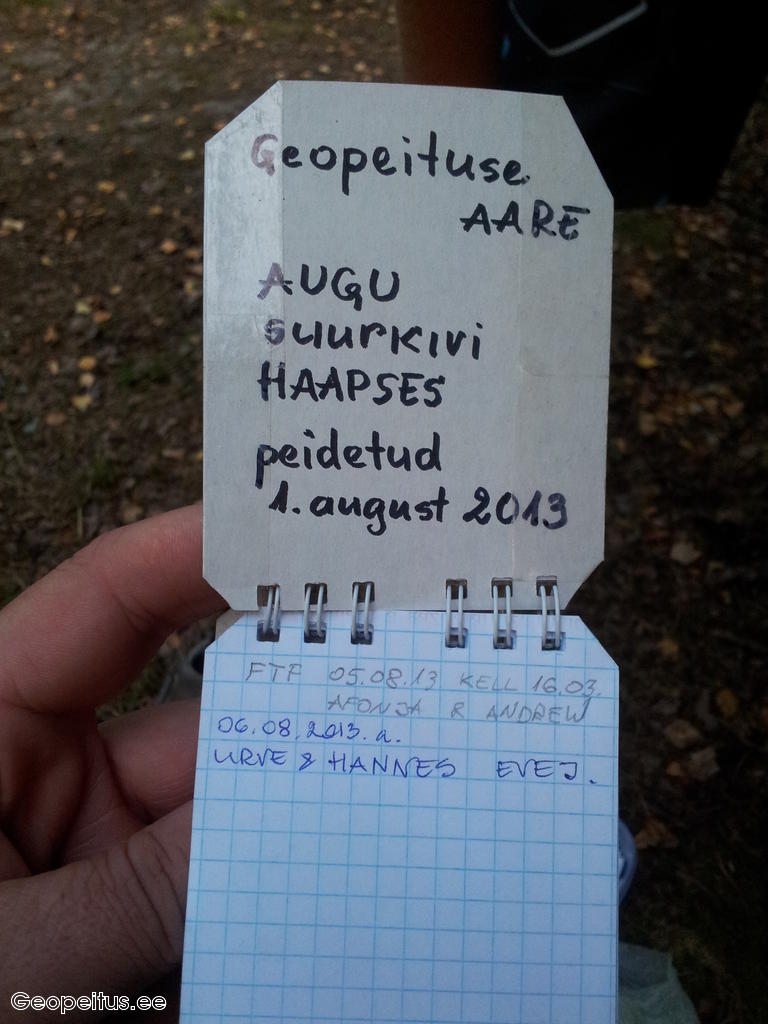 Geopeituse
AARE
AUGU
SUURKIVI
HAAPSES
peidetud
1. august 2013
FTF 05.08.13 KELL 16.03.
AFONJA & ANDREW
06.08.2013.a.
URVE & HANNES EVEJ.
Geopeitus.ee